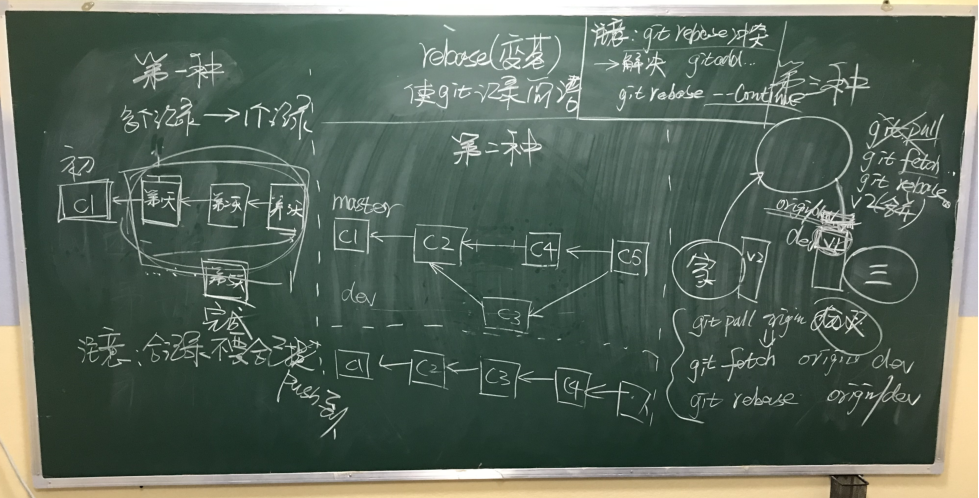 rebase(变基)
使git记录简洁
注意: git rebase冲突
→解决 git add...
git rebase --continue
第一种
多个记录→1个记录
初
C1
第一次
第二次
第三次
完成
注意:合记录不要合已
push到
第二种
master
C1
C2
C4
C5
dev
C3
C1
C2
C3
C4
第三种
git pull
git fetch
git rebase
V2(合并)
origin/dev
dev
V1
家
V2
三
git pull origin dev
git fetch origin dev
git rebase origin/dev